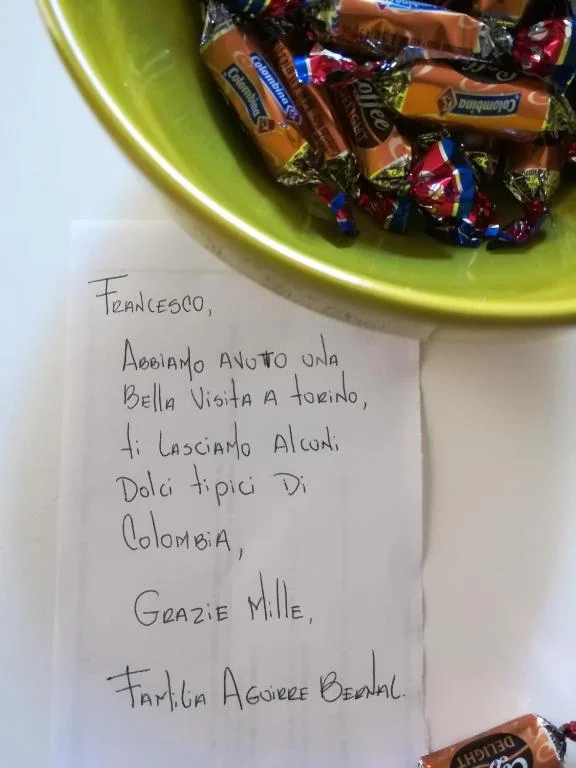 Colombina
Colombina
Coffee
DELIGHT
Colombina
FRANCESCO,
ABBIAMO AVUTO UNA
BELLA VISITA A TORINO,
TI LASCIAMO ALCUNI
DOLCI TIPICI DI
COLOMBIA,
GRAZIE MILLE,
FAMILIA AGUIRRE BERNAL.
DELIGHT